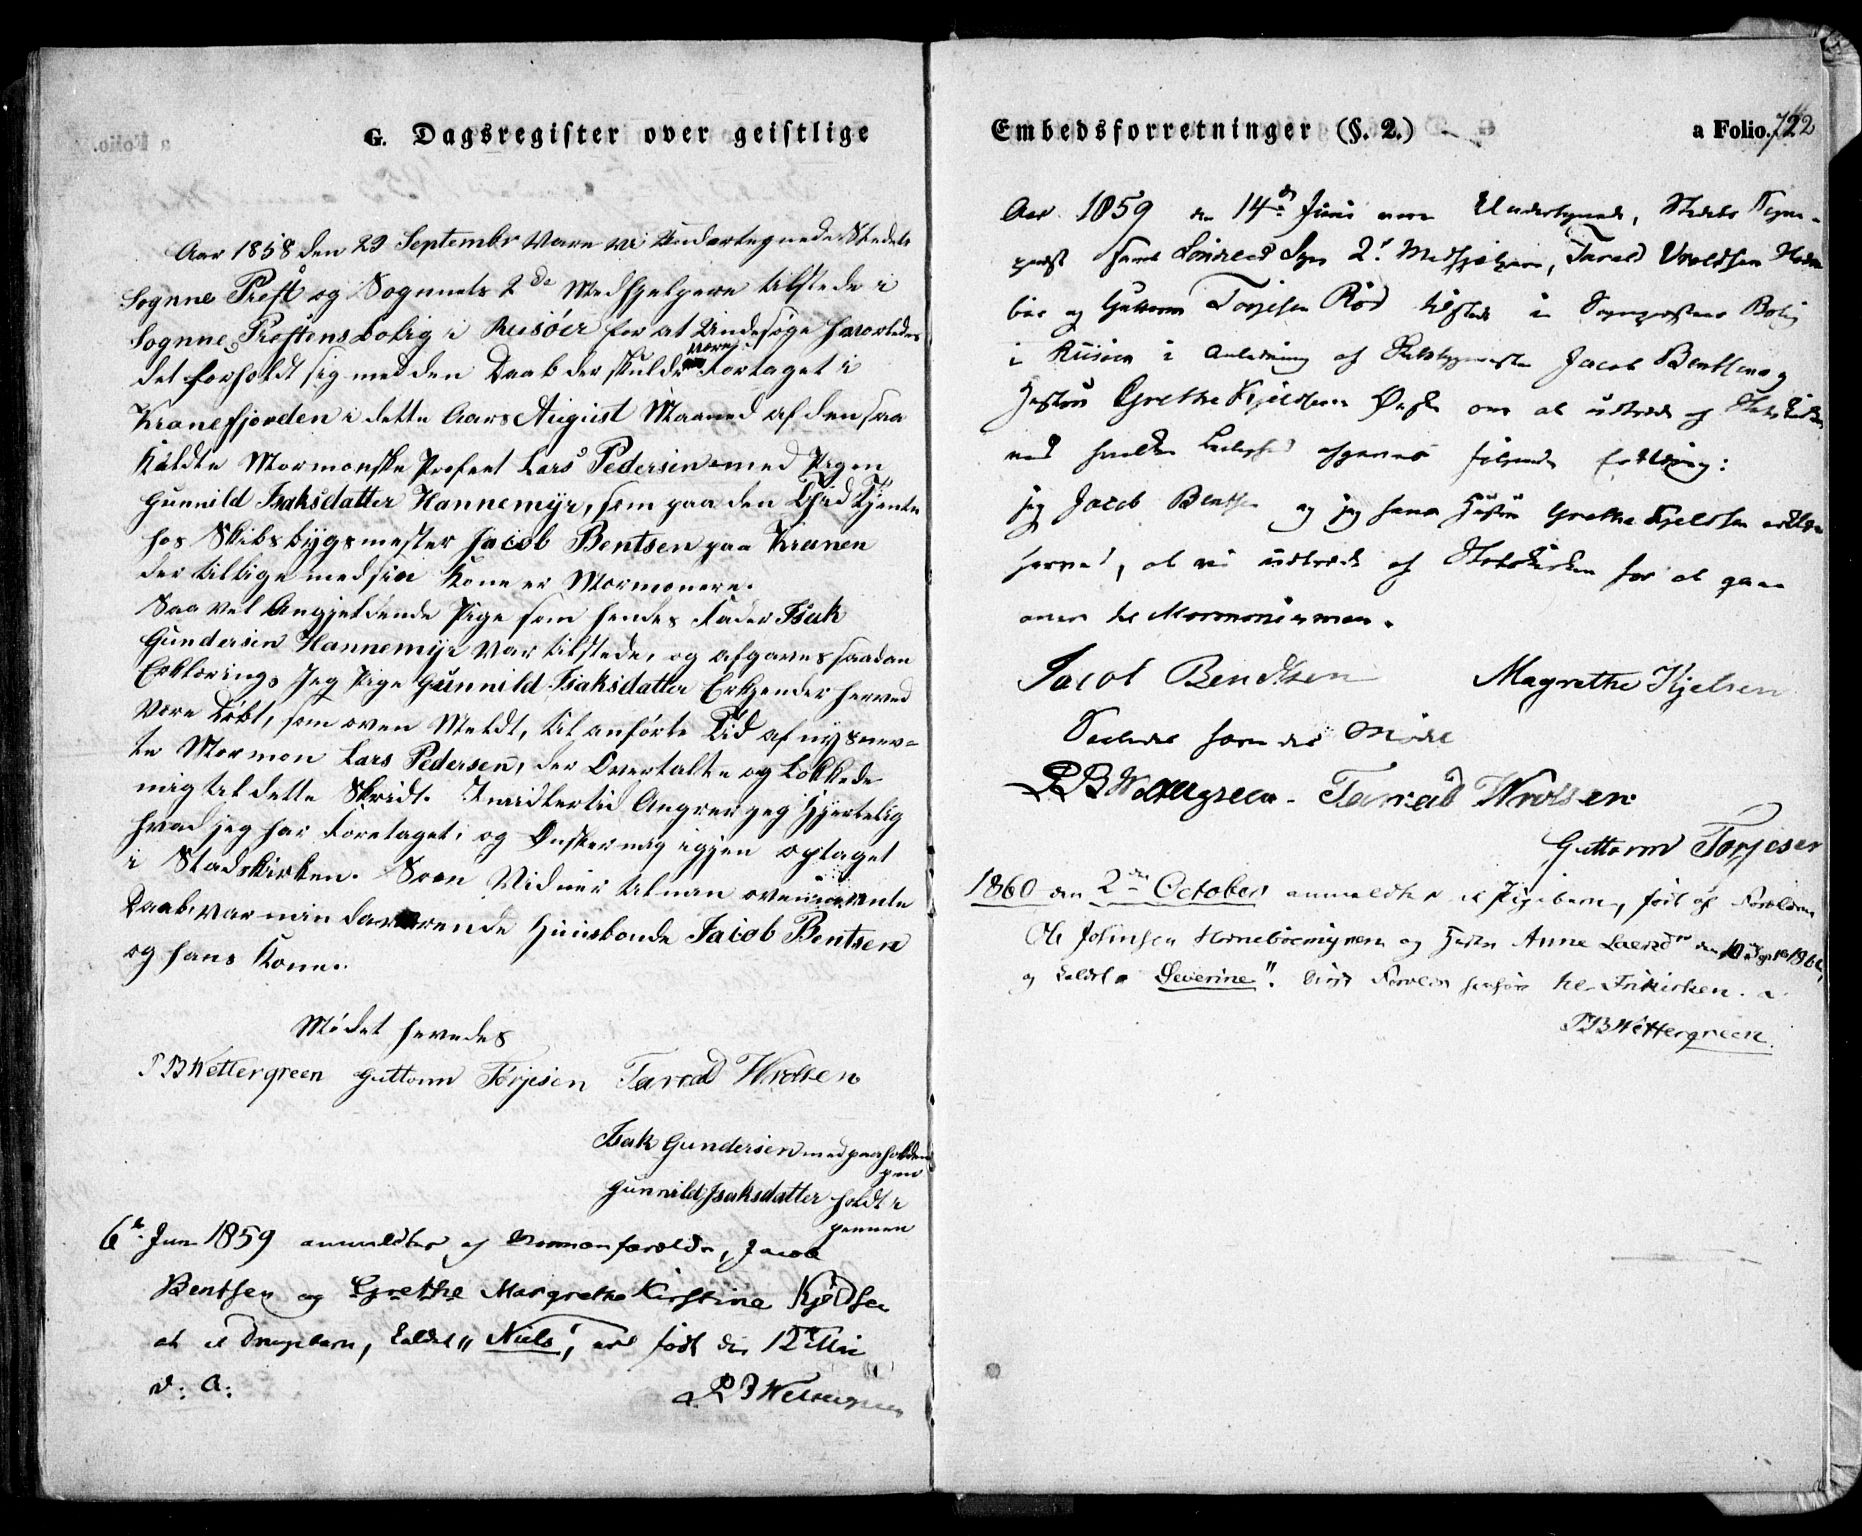 G. Dagsregister over geistlige
Aar 1858 den 29 Septembr Vare vi Undertegnede Stedets
Sognne Prest og Sognnets 2de Medhjelpere tilstede i
Sognne Prestens bolig i Riisöer for at Undesöge hvorledes
det forholdt sig med den Daab der skulde være Fortaget i
Kranefjorden i dette Aars August Maaned af den saa
Kaldte Mormonske Profeet Lars Pedersen med Pigen
Gunnild Isaksdatter Hannemyr, som paa den Tid Tjente
hos Skibsbygmester Jacob Bentsen paa Kranen
der tillige med sin Kone er Mormonere.
Saa vel Angjeldende Pige som hendes Fader Isak
Gundersen Hannemyr var tilstede, og afgaves saadan
Erklæring; Jeg Pige Gunnild Isaksdatter Erkjender herved
Være Döbt, som oven Meldt, til anförte Tid af nysnev-
te Mormon Lars Pedersen, der Overtalte og Lokkede
mig til dette Skridt. Imidlertid Angrer jeg Hjertelig
hvad jeg har Foretaget; og Önsker mig igjen optaget
i Stadskirken. Som Vidner til min ovennevnte
Daab, var min daværende Huusbonde Jacob Bentsen
og hans Kone.
Mödet hevedes
P B Wettergreen Guttorm Törjesen Tarald Wrolsen
Isak Gundersen med paaholden
pen
Gunnild Isaksdatter holdt i
pennen
6te Juni 1859 anmeldtes af Mormonforældre, Jacob
Bentsen og Grethe Margrethe Kirstine Kjeldsen
at et Drengebarn, kaldet "Niels", er födt den 12te Mai
d: A:
P B Wettergreen
Embedsforretninger (§. 2.) a Folio. 722
Aar 1859 den 14de Juni vare Undertegnede, Stedets Sogne-
prest samt Söndeleds Sogns 2de Medhjelpere, Tarald Vroldsen
og Guttorm Torjesen Röd tilstede i Sogneprestens Bolig
i Riisöer i Anledning af Skibsbygmester Jacob Bentsens og
Hustru Grethe Kjeldsens Önske om at udtræde af Statskirken,
ved hvilken Leilighed afgaves fölgende Erklæring:
jeg Jacob Bentsen og jeg hans Hustru Grethe Kjeldsen erklære
herved, at vi udtræde af Statskirken for at gaae
over til Mormonismen.
Jacob Bendtsen Magrethe Kjelsen
Saaledes for os Möde
P B Wettergreen. Tarald Wrolsen
Guttorm Torjesen
1860 den 2den October anmeldtes et Pigebarn, född af Forældrene
Ole Johnsen og Hustru Anne Larsdtr den 10de Septbr 1860,
og kaldet "Severine". Disse Forældre henhöre til Frikirken.
P B Wettergreen.